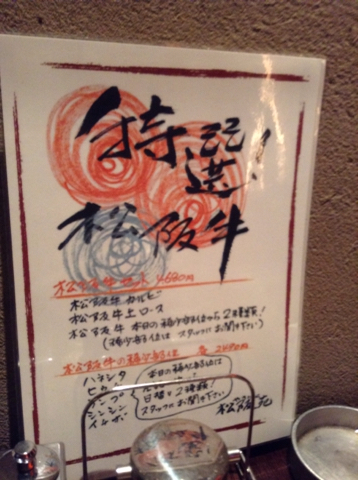 特選!
松阪牛
松阪牛セット 4680円
松阪牛 カルビ
松阪牛 上ロース
松阪牛 本日の稀少部位から2種類!
(稀少部位は スタッフにお聞き下さい)
松阪牛の稀少部位 各 2480円
ハネシタ
ランプ
シンシン
イチボ
本日の稀少部位は
日替り2種類!
スタッフにお聞き下さい